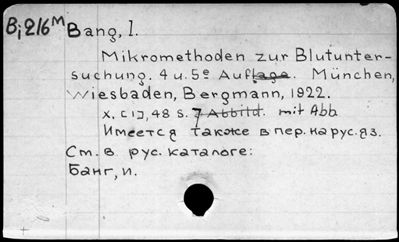 Bi 216 M Bang, I.
Mikromethoden zur Blutunter-
suchung. 4 u. 5e Auflage. München,
Wiesbaden, Bergmann, 1922.
X, [1], 48 S. 7 Abbild. mit Abb
Имеется также в пер. на рус. яз.
См. в рус. каталоге:
Банг, И.